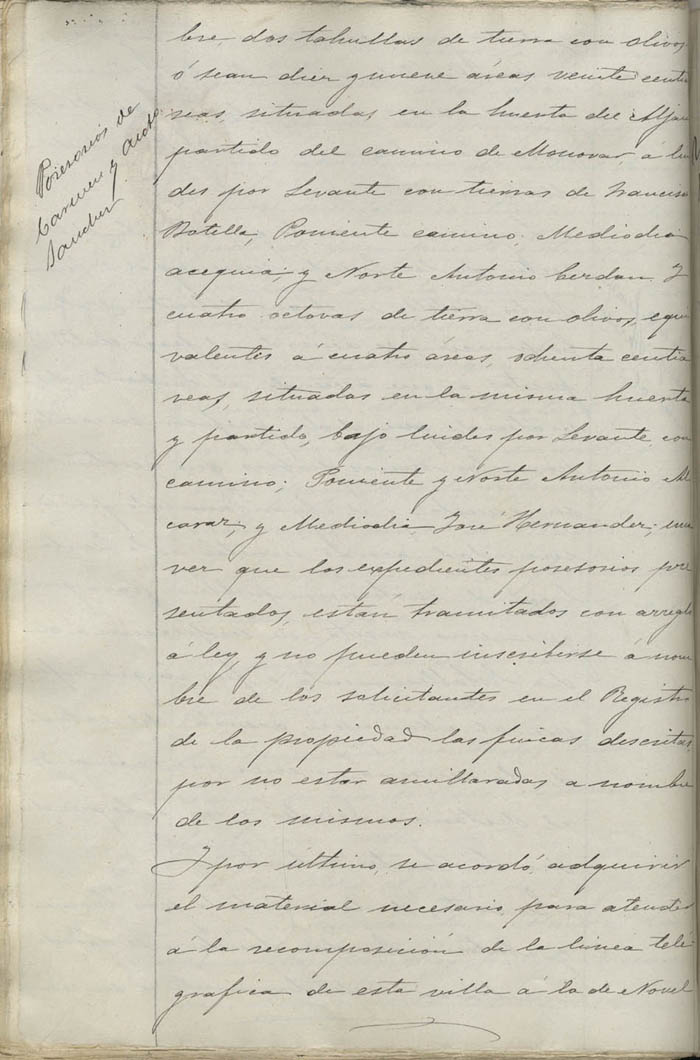 Posesorios de
Carmen y
Sanchez
bre, dos tahullas de tierra con olivos
ó sean diez y nueve áreas veinte centi
reas, situadas en la huerta del Aljau
partido del camino de Monovar, á lin
des por Levante con tierras de Francisco
Botella; Poniente camino; Mediodia
acequia; y Norte Antonio Cerdan. Y
cuatro octavas de tierra con olivos, equi
valentes á cuatro áreas, ochenta centia
reas, situadas en la misma huerta
y partido, bajo lindes por Levante con
camino; Poniente y Norte Antonio Al
caraz; y Mediodia José Hernandez; una
vez que los expedientes posesorios pre
sentados, están tramitados con arreglo
á ley, y no pueden inscribirse á nom
bre de los solicitantes en el Registro
de la propiedad las fincas descritas,
por no estar amillaradas a nombre
de los mismos.
Y por último, se acordó, adquirir
el material necesario, para atender
á la recomposición de la linea telé
grafica de esta villa á la de Novel